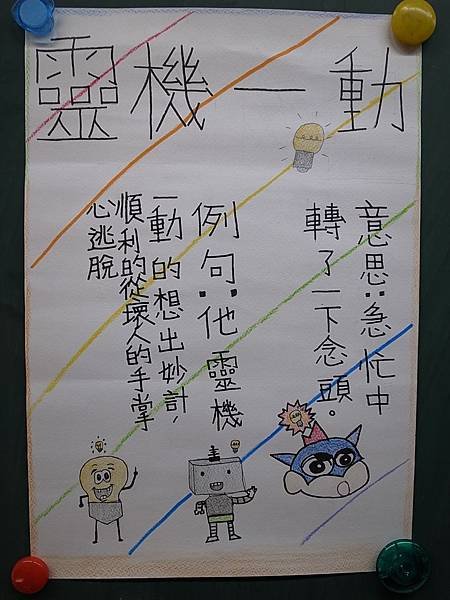 靈機一動
意思:急忙中
轉了一下念頭。
例句:他靈機
一動的想出妙計,
順利的從壞人的手掌
心逃脫